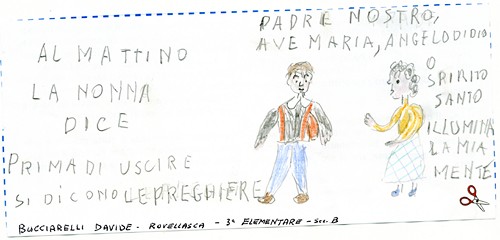 AL MATTINO
LA NONNA
DICE
PRIMA DI USCIRE
SI DICONO LE PREGHIERE
PADRE NOSTRO,
AVE MARIA, ANGELO DI DIO,
O
SPIRITO
SANTO
ILLUMINA
LA MIA
MENTE
BUCCIARELLI DAVIDE - ROVELLASCA - 3ª ELEMENTARE - SEZ. B